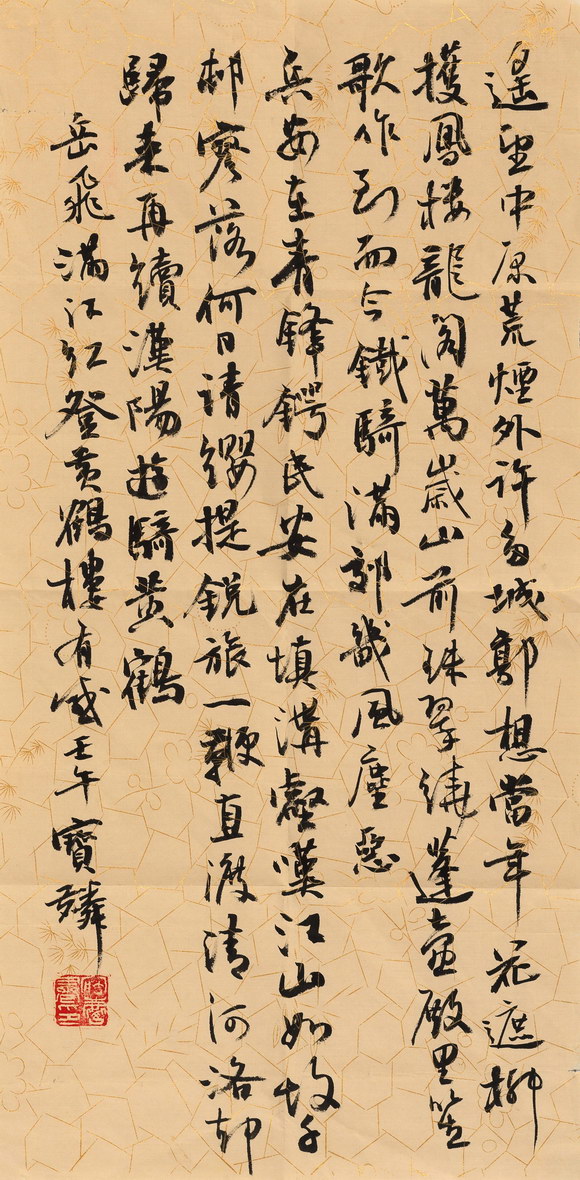 遙望中原荒煙外許多城郭想當年花遮柳
護鳳楼龍閣萬歲山前珠翠繞蓬壺殿里笙
歌作到而今鐵騎滿郊畿風塵惡
兵安在膏鋒鍔民安在填溝壑嘆江山如故千
邨寥落何日請纓提銳旅一鞭直渡清河洛却
歸来再續漢陽遊騎黃鶴
岳飛滿江紅登黃鶴樓有感壬午寶麟